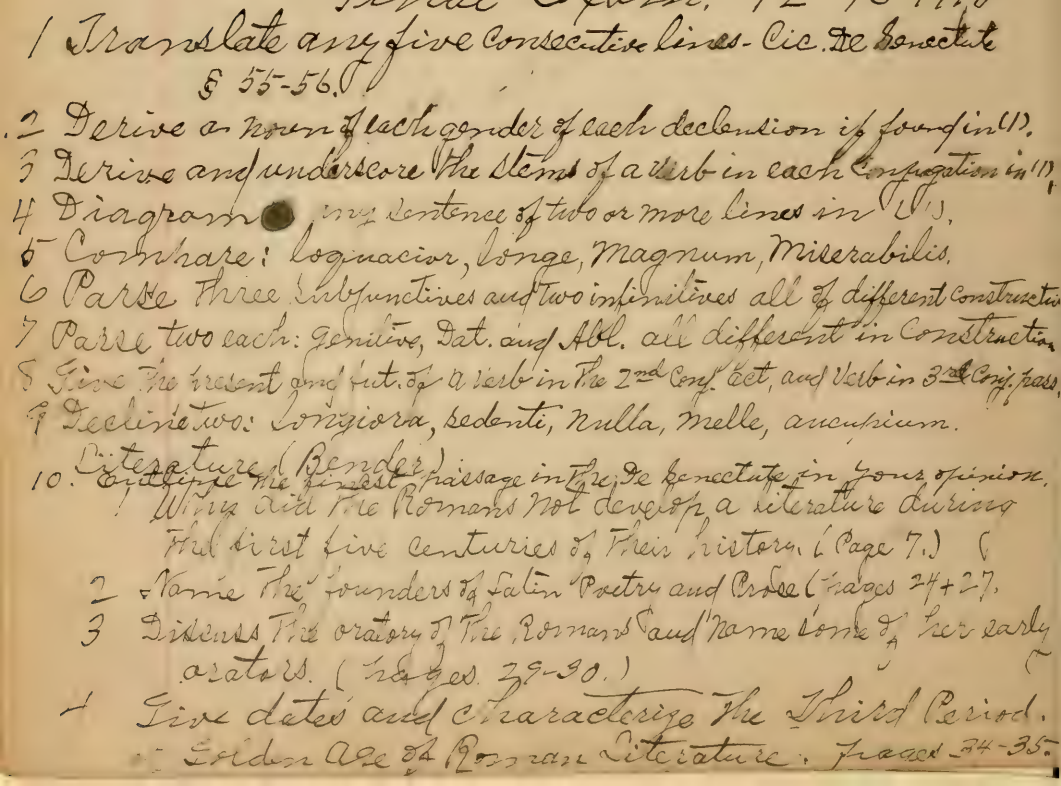 Final Exam. 12
1 Translate any five consecutive lines - Cic. De Senectute
§ 55-56.
2 Derive a noun of each gender of each declension if found in (1).
3 Derive and underscore the stems of a verb in each Conjugation in (1).
4 Diagram any sentence of two or more lines in (1).
5 Compare: loquacior, longe, Magnum, Miserabilis.
6 Parse Three Subjunctives and two infinitives all of different constructio
7 Parse two each: Genitive, Dat. and Abl. all different in Construction
8 Give The present and fut. of a verb in The 2nd Conj. Act, and Verb in 3rd Conj. pass.
9 Decline two: Longiora, sedenti, Nulla, Melle, aucupium.
Literature (Bender)
10. Outline The finest passage in The De Senectute in your opinion.
1 Why did The Romans not develop a literature during
The first five centuries of Their history. (Page 7.)
2 Name The founders of Latin Poetry and Prose (Pages 24+27.
3 Discuss The oratory of The Romans and name some of her early
orators. (Pages 29-30.)
4 Give dates and characterize The Third Period.
Golden Age of Roman Literature. pages 34-35.